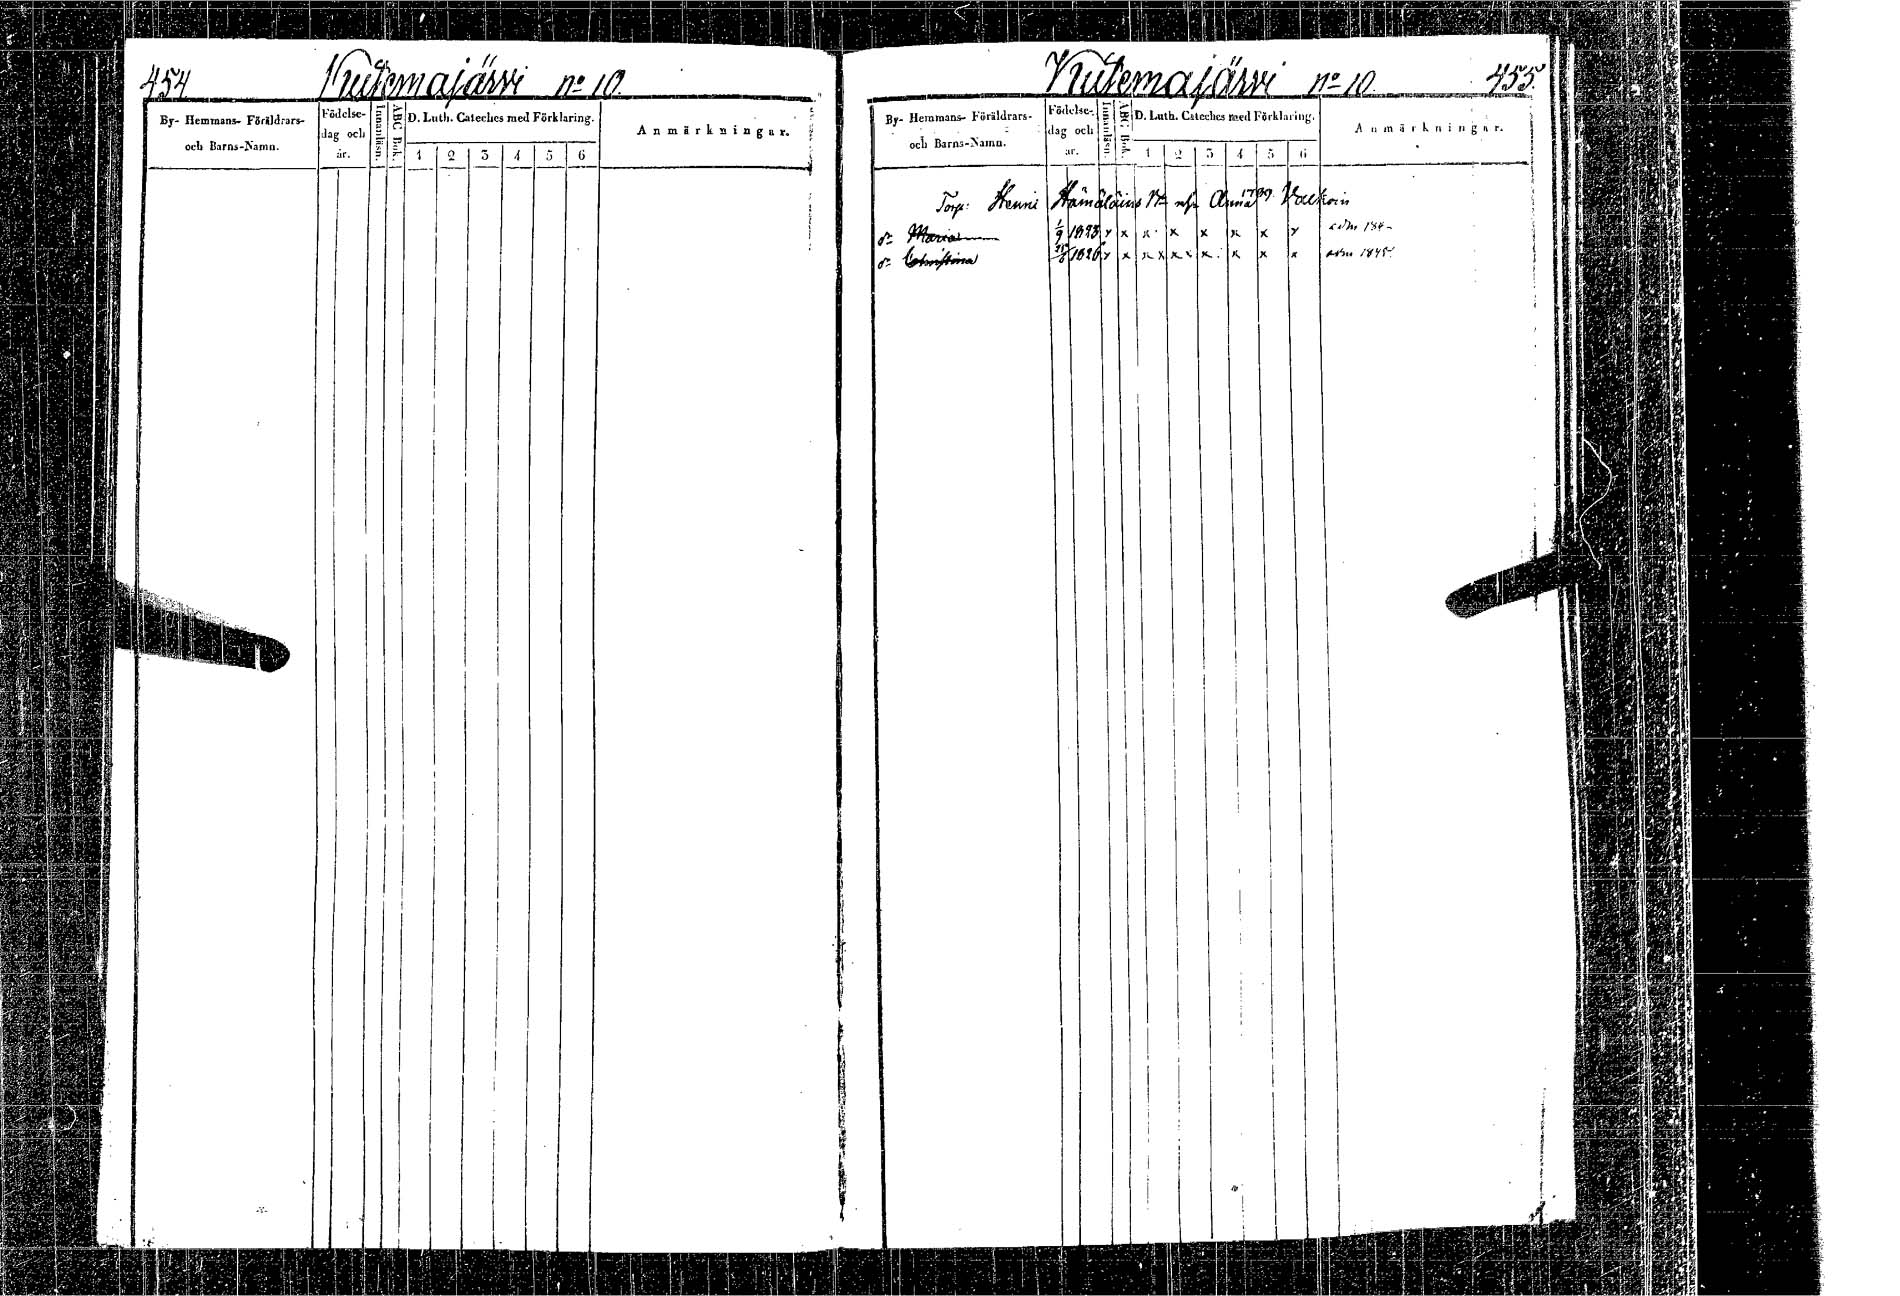 454 Kutemajärvi no 10.
By- Hemmans- Föräldrars-
och Barns-Namn.
Födelse-
dag och
år.
Innanläsn.
ABC Bok.
D. Luth. Cateches med Förklaring.
1 2 3 4 5 6
Anmärkningar.
Kutemajärvi no 10. 455.
By- Hemmans- Föräldrars-
och Barns-Namn.
Födelse-
dag och
år.
Innanläsn.
ABC Bok.
D. Luth. Cateches med Förklaring.
1 2 3 4 5 6
Anmärkningar.
Torp: Henric Hämäläins Anna
dr Maria 1/9 1823 x x x x x x x x adm 184-
dr Christina 1826 x x x x x x x x x x adm 1845